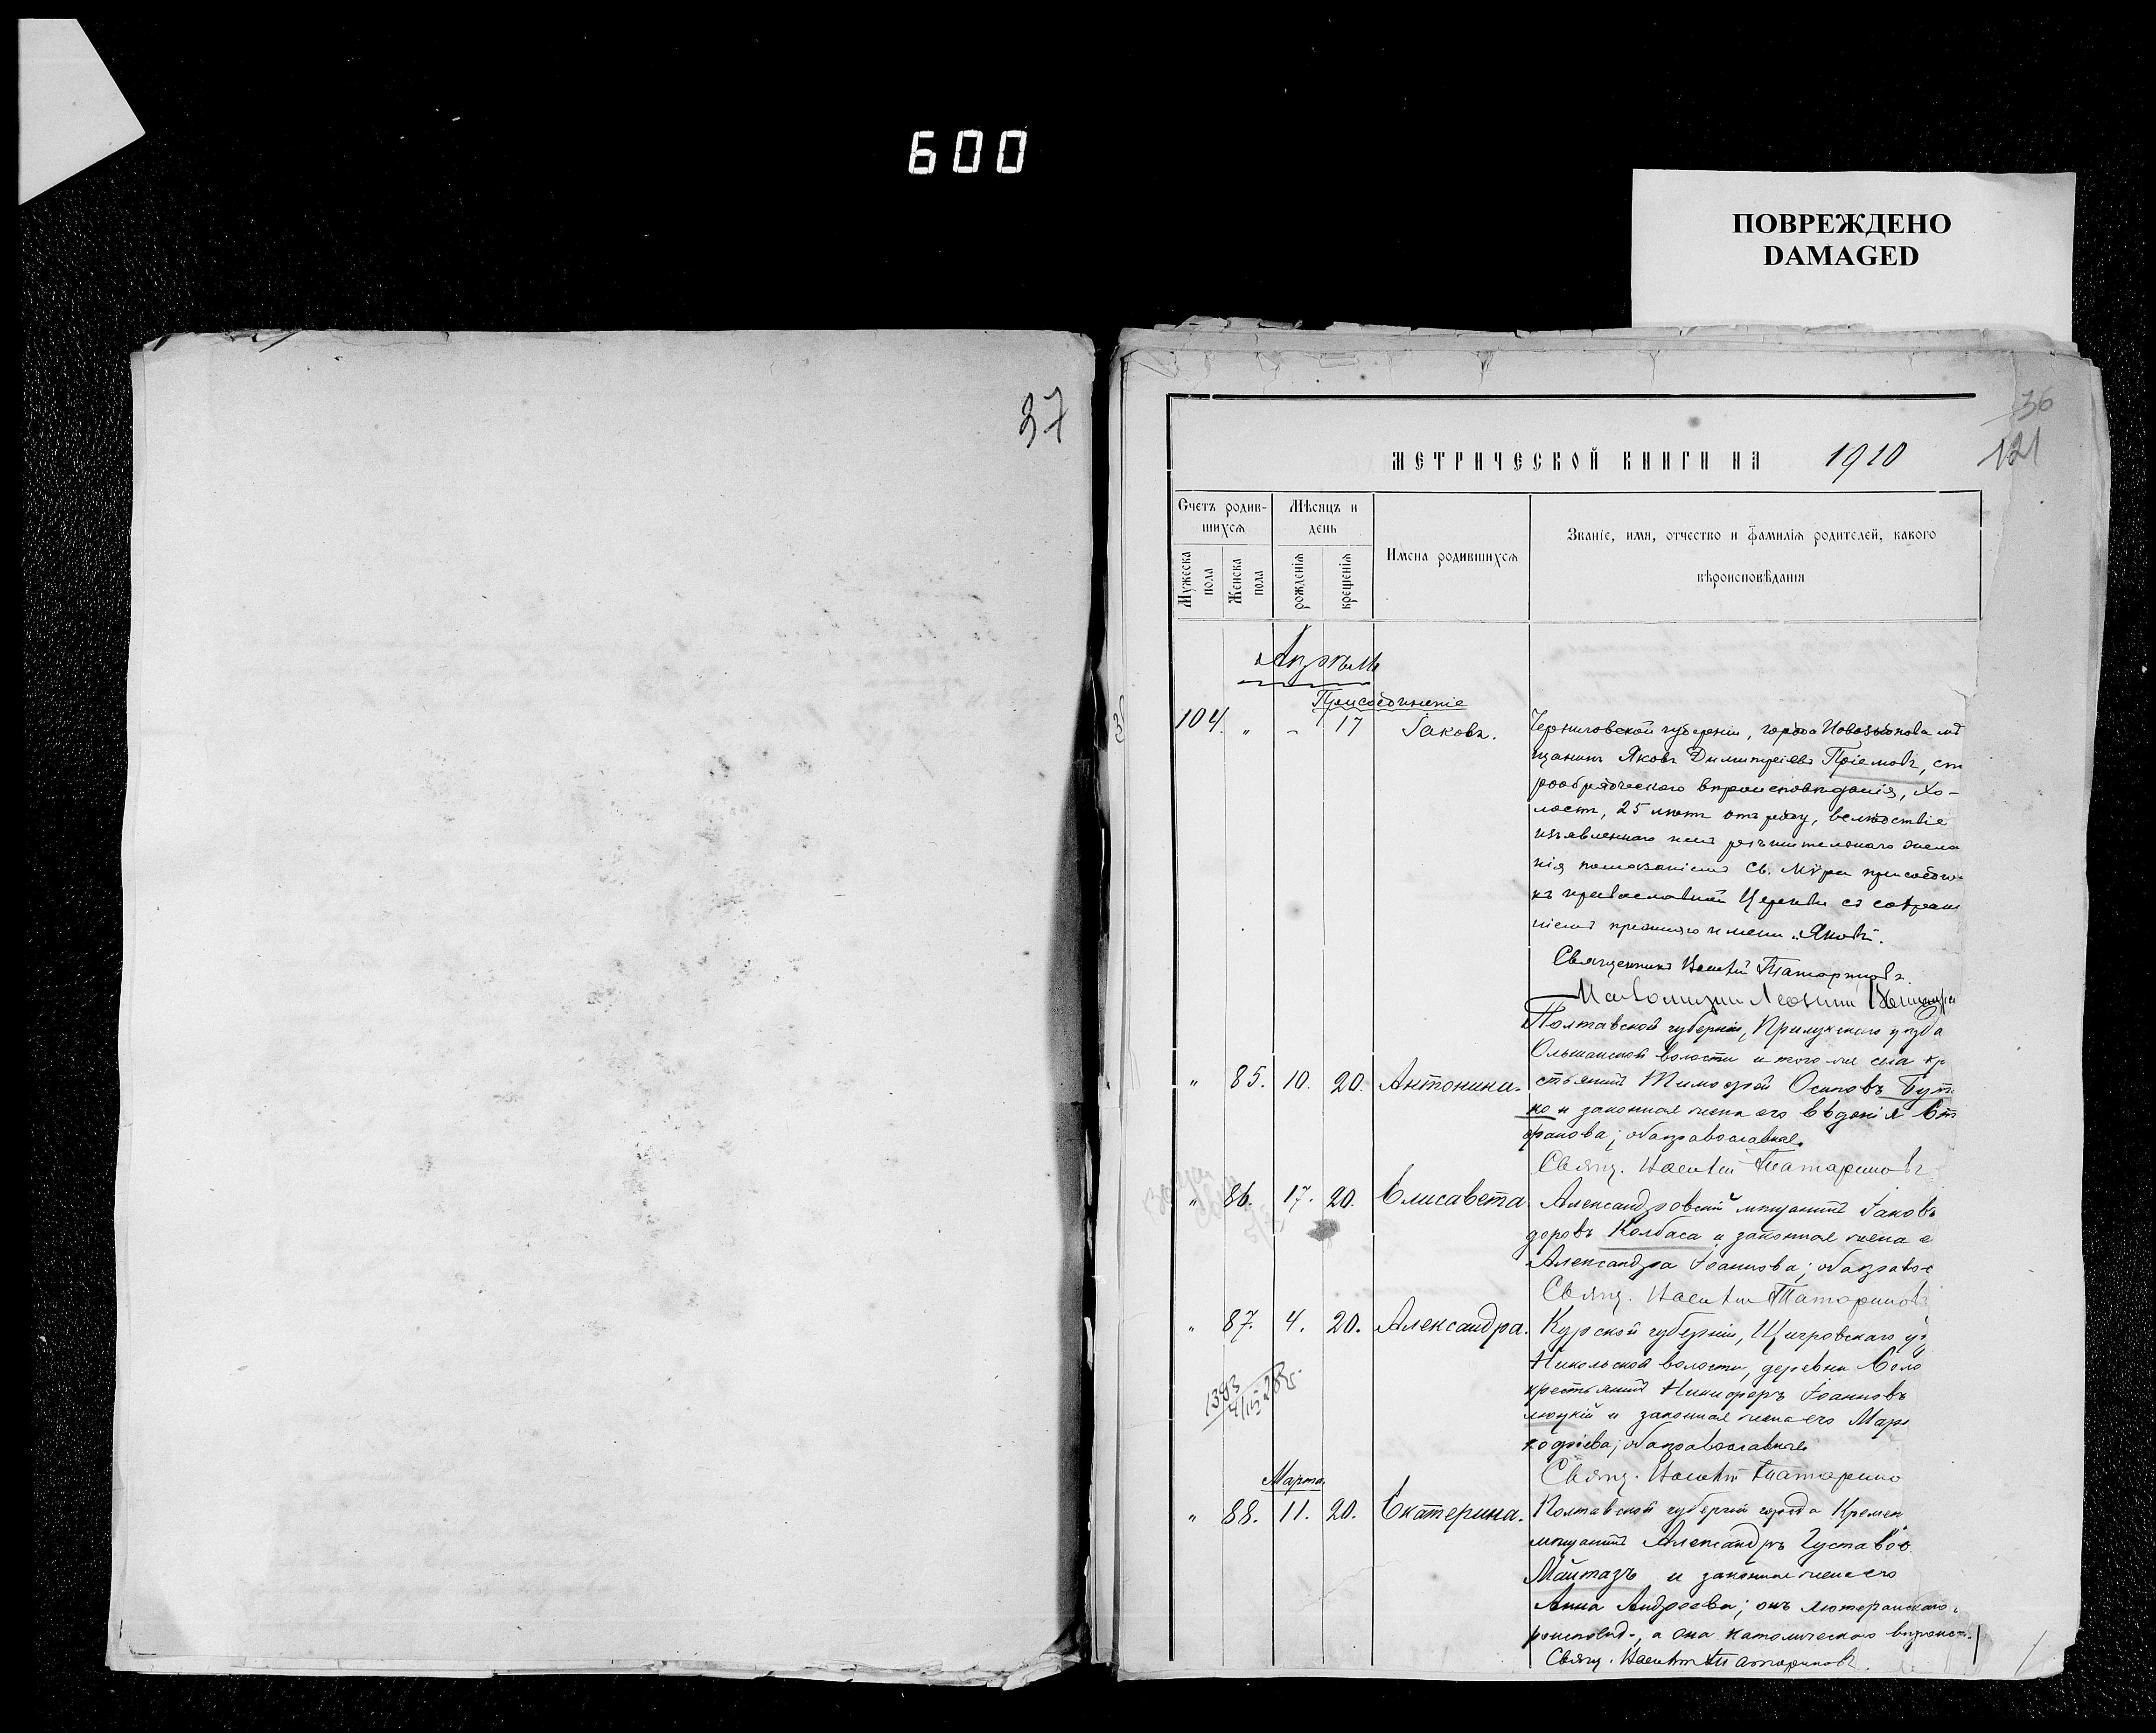 600
ПОВРЕЖДЕНО
DAMAGED
37
36
121
МЕТРИЧЕСКОЙ КНИГИ НА 1910
Счетъ родив-
шихся
Мужеска
пола
Женска
пола
Мѣсяцъ и
день
рожденія
крещенія
Имена родившихся
Званіе, имя, отчество и фамилія родителей, какого
вѣроисповѣданія
Апрѣль
Присоединеніе
104. " - 17 Іаковъ. Черниговской губерніи, города Новозыбкова мѣ
щанинъ Яковъ Димитріевъ Пріемовъ, ст
рообрядческаго вѣроисповѣданія, хо-
лостъ, 25 лѣтъ отъ роду, вслѣдствіе
изъявленнаго имъ рѣшительнаго жела
нія помазаніемъ Св. Мѵра присоедин
къ православной Церкви съ сохране
ніемъ прежняго имени "Яковъ".
Священникъ Татариновъ.
Полтавской губерніи, Прилукскаго уѣзда
Ольшанской волости и того-же села кр
" 85. 10. 20. Антонина. стьянинъ Тимофей Осиповъ Бут
ко и законная жена его Евдокія Ст
фанова; оба православные.
Свящ. Татариновъ
" 86. 17. 20. Елисавета. Александровскій мѣщанинъ Іаковъ
доровъ Колбаса и законная жена е
Александра Іоаннова; оба правос
Свящ. Татариновъ
" 87. 4. 20. Александра. Курской губерніи, Щигровскаго уѣ
Никольской волости, деревни
крестьянинъ Никифоръ Іоанновъ
и законная жена его Мар
оба православные
Свящ. Татарино
Марта
" 88. 11. 20. Екатерина. Полтавской губерніи города Кремен
мѣщанинъ Александръ Густавов
Майтазъ и законная жена его
Анна Андреева; онъ лютеранскаго
роисповѣд., а она католическаго вѣроисп.
Свящ. Татариновъ.